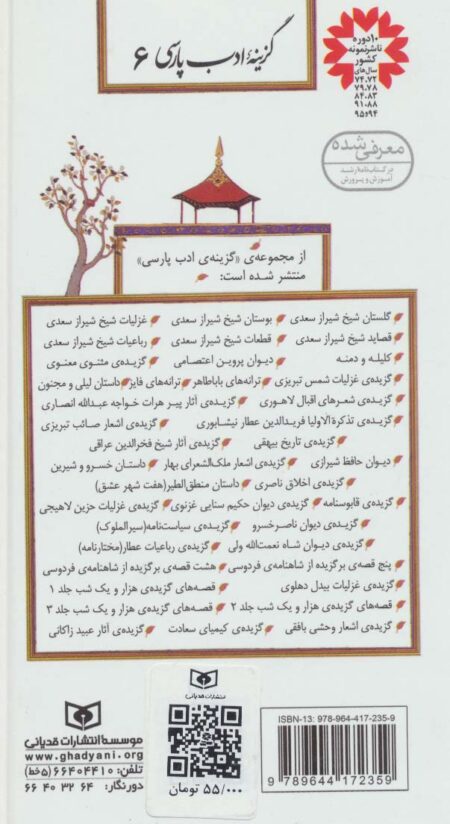 گزینهٔ ادب پارسی ۶
۱۰ دوره
ناشر نمونه
کشور
سال‌های
۷۴،۷۲
۷۹،۷۸
۸۴،۸۳
۹۱،۸۸
۹۵و۹۴
معرفی شده
در کتاب‌نامه رشد
آموزش و پرورش
از مجموعه‌ی «گزینه‌ی ادب پارسی»
منتشر شده است:
گلستان شیخ شیراز سعدی بوستان شیخ شیراز سعدی غزلیات شیخ شیراز سعدی
قصاید شیخ شیراز سعدی قطعات شیخ شیراز سعدی رباعیات شیخ شیراز سعدی
کلیله و دمنه دیوان پروین اعتصامی گزیده‌ی مثنوی معنوی
گزیده‌ی غزلیات شمس تبریزی ترانه‌های باباطاهر ترانه‌های فایز داستان لیلی و مجنون
گزیده‌ی شعرهای اقبال لاهوری گزیده‌ی آثار پیر هرات خواجه عبدالله انصاری
گزیده‌ی تذکرة الاولیا فریدالدین عطار نیشابوری گزیده‌ی اشعار صائب تبریزی
گزیده‌ی تاریخ بیهقی گزیده‌ی آثار شیخ فخرالدین عراقی
دیوان حافظ شیرازی گزیده‌ی اشعار ملک‌الشعرای بهار داستان خسرو و شیرین
گزیده‌ی اخلاق ناصری داستان منطق‌الطیر(هفت شهر عشق)
گزیده‌ی قابوسنامه گزیده‌ی دیوان حکیم سنایی غزنوی گزیده‌ی غزلیات حزین لاهیجی
گزیده‌ی دیوان ناصرخسرو گزیده‌ی سیاست‌نامه(سیرالملوک)
گزیده‌ی دیوان شاه نعمت‌الله ولی گزیده‌ی رباعیات عطار(مختارنامه)
پنج قصه‌ی برگزیده از شاهنامه‌ی فردوسی هشت قصه‌ی برگزیده از شاهنامه‌ی فردوسی
گزیده‌ی غزلیات بیدل دهلوی قصه‌های گزیده‌ی هزار و یک شب جلد ۱
قصه‌های گزیده‌ی هزار و یک شب جلد ۲ قصه‌های گزیده‌ی هزار و یک شب جلد ۳
گزیده‌ی اشعار وحشی بافقی گزیده‌ی کیمیای سعادت گزیده‌ی آثار عبید زاکانی
موسسه انتشارات قدیانی
www.ghadyani.org
تلفن: ۶۶۴۰۴۴۱۰ (۵خط)
دورنگار: ۶۶۴۰۳۲۶۴
انتشارات قدیانی
۵۵/۰۰۰ تومان
ISBN-13: 978-964-417-235-9
9 789644 172359